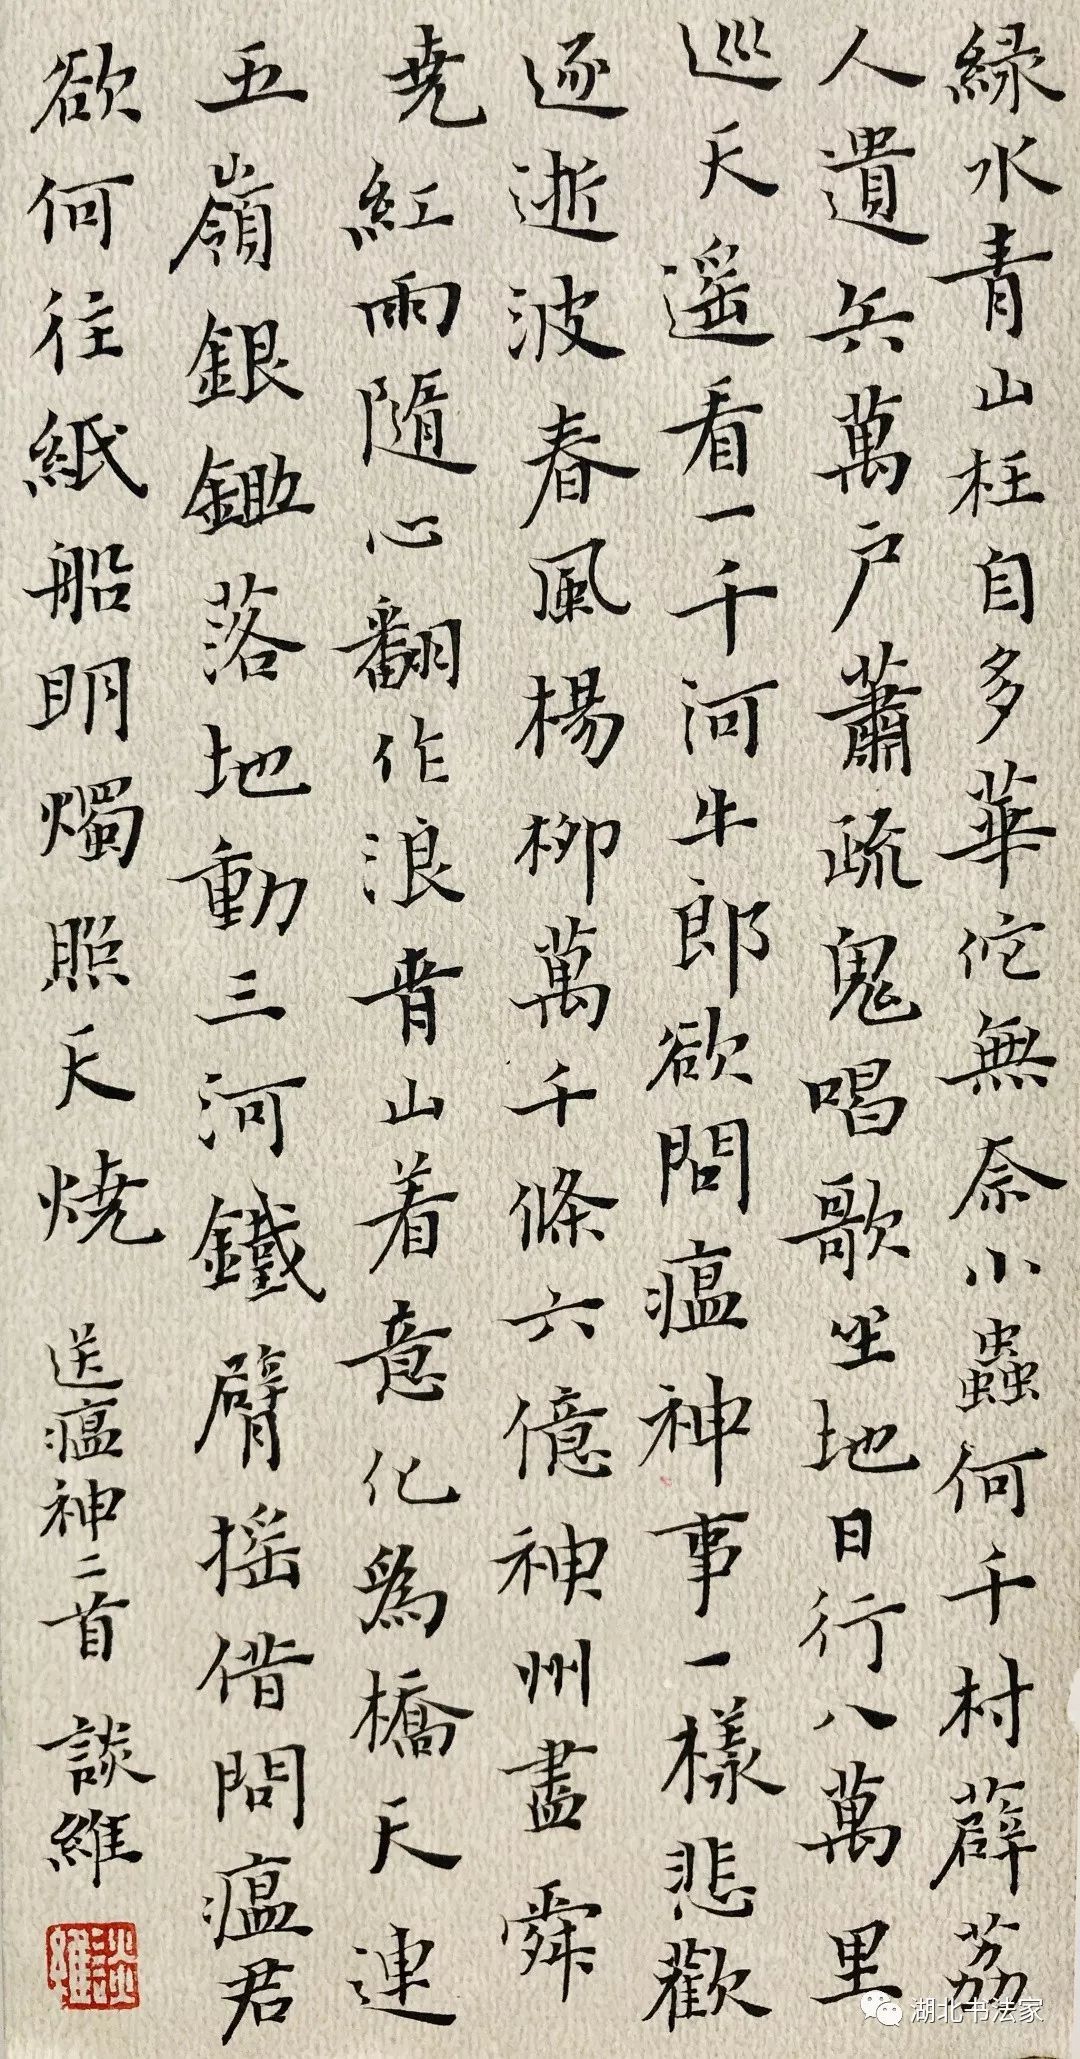 緑水青山枉自多華佗無奈小蟲何千村薜荔
人遺兵萬户蕭疏鬼唱歌坐地日行八萬里
巡天遥看一千河牛郎欲問瘟神事一樣悲歡
逐逝波春風楊柳萬千條六億神州盡舜
堯紅雨隨心翻作浪青山着意化爲橋天連
五嶺銀鋤落地動三河鐵臂摇借問瘟君
欲何往紙船明燭照天燒 送瘟神二首 談維
談維
湖北书法家